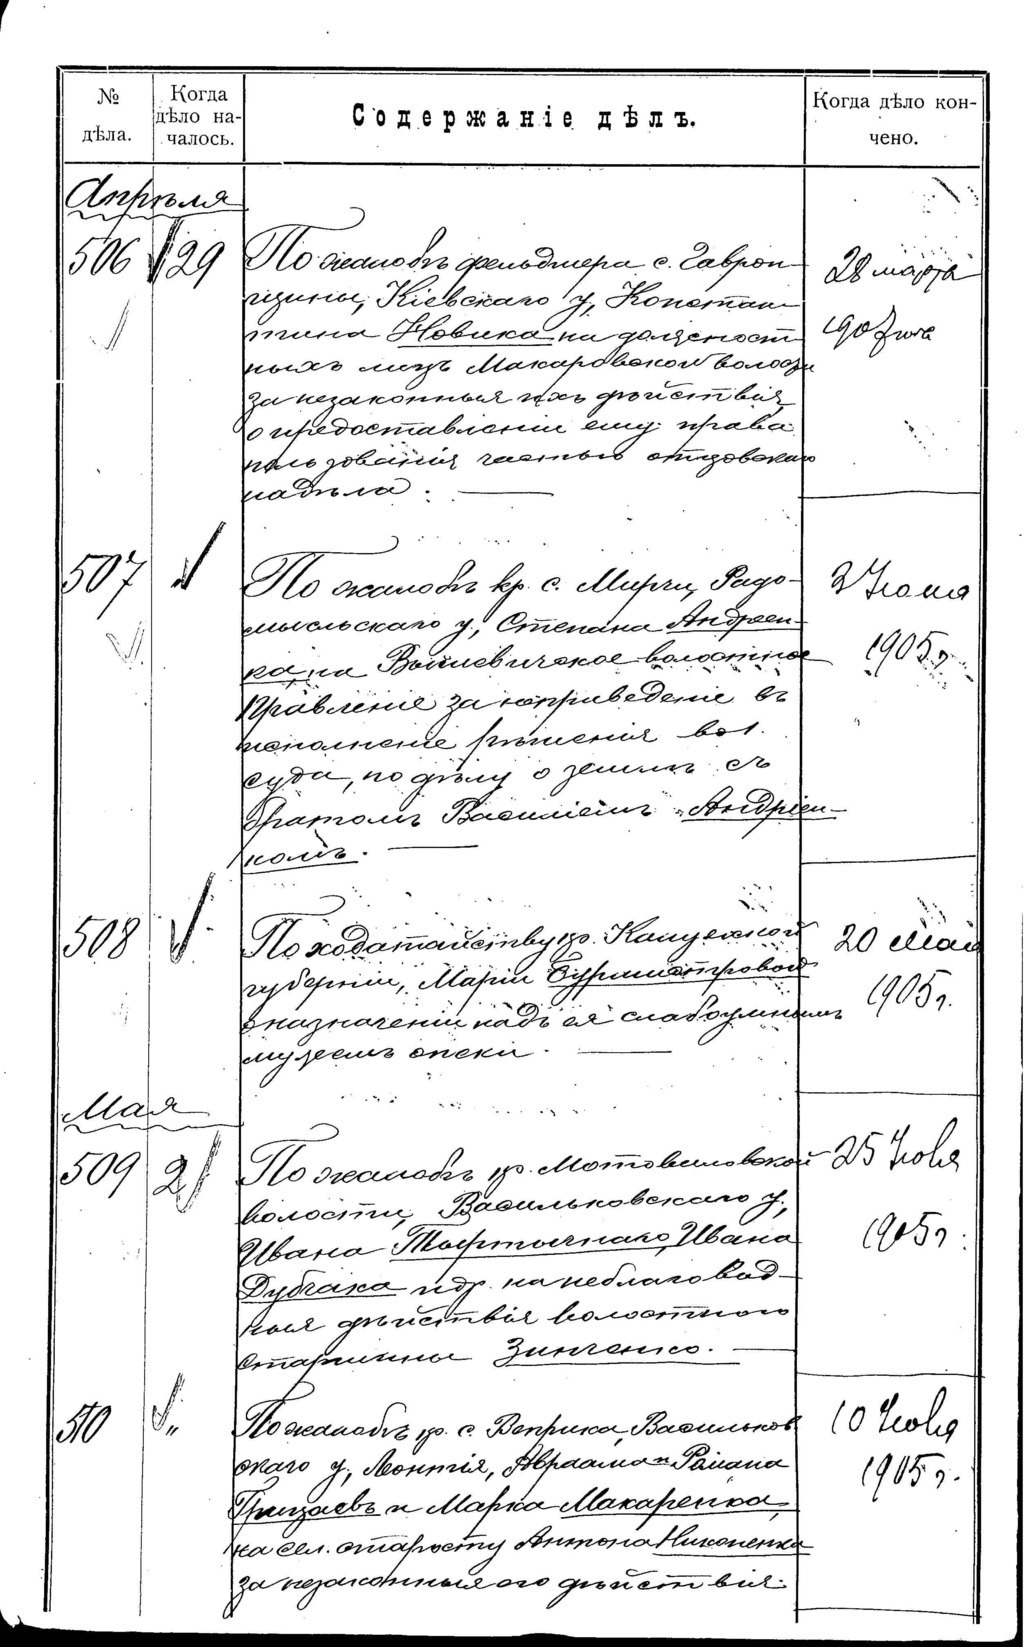 № дѣла.
Когда дѣло на-
чалось.
Содержаніе дѣлъ.
Когда дѣло кон-
чено.
Апрѣля
506 29 По жалобѣ фельдшера с. Гаврон-
щины, Кіевскаго у, Констан-
тина Новика на должност
ныхъ лицъ Макаровской волости
за незаконныя ихъ дѣйствія
о предоставленіи ему права
пользованія частью отцовскаго
надѣла.
28 марта
1907 года
507 По жалобѣ кр. с. Мирчи, Радо-
мысльскаго у, Степана Андреен-
ка, на Вышевичское волостное
Правленіе за неприведеніе въ
исполненіе рѣшенія вол.
суда, по дѣлу о землѣ съ
братомъ Василіемъ Андріен-
комъ.
2 Іюня
1905 г.
508 По ходатайству кр. Калужской
губерніи, Маріи Бурмистровой
о назначеніи надъ ея слабоумнымъ
мужемъ опеки.
20 Мая
1905 г.
Мая
509 2 По жалобѣ кр. Мотовиловской
волости, Васильковскаго у,
Ивана Ивана
Дубчака и др. на неблаговид-
ныя дѣйствія волостного
Старшины Зинченко.
25 Іюля
1905 г.
510 По жалобѣ кр. с. Веприка, Васильков
скаго у, Леонтія, Авраама и Романа
Грицаевъ и Марка Макаренка,
на сел. старосту Антона Никоненка
за незаконныя его дѣйствія.
10 Іюля
1905 г.